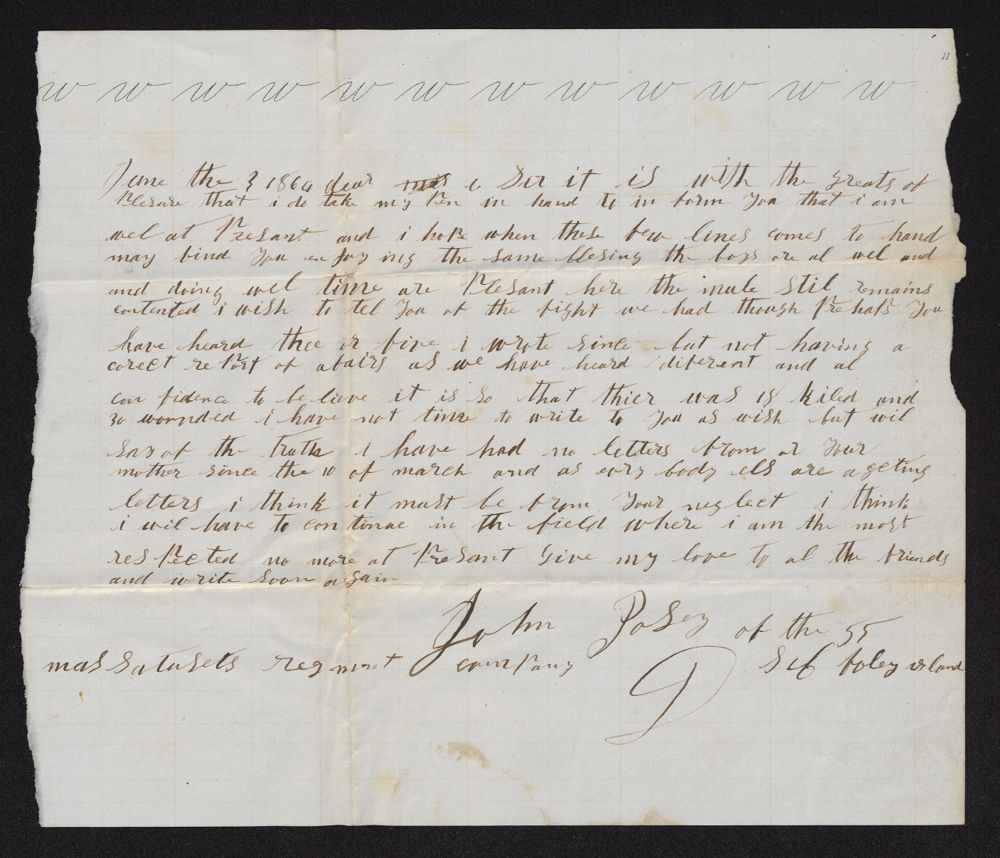 w w w w w w w w w w w w
June the 3 1864 dear sir it is with the greats of
Plesure that i do take my Pen in hand to in form you that i am
wel at Presant and i hoPe when these few lines comes to hand
may find you en Joy ing the same blesing the boys are al wel and
and doing wel time are Plesant here the mule stil remains
contented i wish to tel you of the fight we had though Prehaps you
have heard thre or five i wrote since but not having a
corect rePort of afairs as we have heard diferent and al
con fidence to be lieve it is so that thier was 18 kiled and
30 wounded i have not time to write to you as wish but wil
say of the truth i have had no letters from or your
mother since the 10 of march and as evry body els are a geting
letters i think it must be from your neglect i think
i wil have to continue in the field where i am the most
resPected no more at Presant Give my love to al the friends
and write soon again
John Posey of the 55
massatusets regment comPany D S C foley island